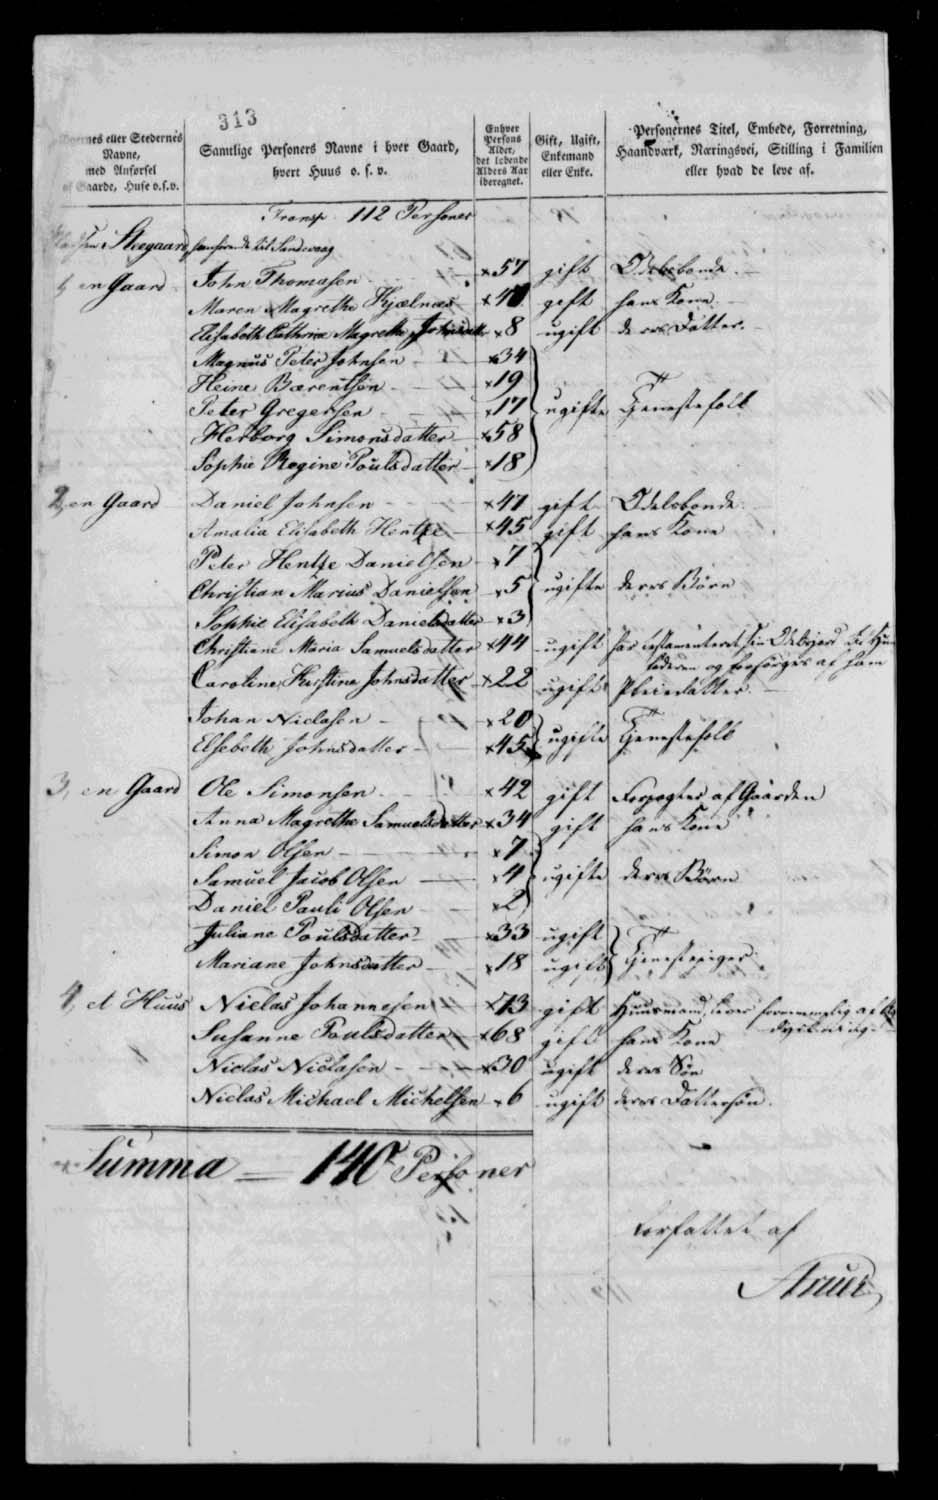 313
eller Stedernes Navne, med Anførsel af Gaarde, Huse o.s.v.
Samtlige Personers Navne i hver Gaard, hvert Huus o. s. v.
Enhver Persons Alder, det løbende Alders Aar iberegnet.
Gift, Ugift, Enkemand eller Enke.
Personernes Titel, Embede, Forretning, Haandværk, Næringsvei, Stilling i Familien eller hvad de leve af.
Transp. 112 Personer
Steegaard, henhørende til Sandevaag
1, en Gaard John Thomasen ×57 gift Odelsbonde
Maren Magrethe Kjælnæs gift hans Kone
Elisabeth Cathrine Magrethe Johnsdatter ×8 ugift deres Datter
Magnus Peter Johnsen ×34
Heine Bærentsen ×19
Peter Gregersen ×17 ugifte Tjenestefolk
Herborg Simonsdatter ×58
Sophie Regine Poulsdatter ×18
2, en Gaard Daniel Johnsen ×41 gift Odelsbonde
Amalia Elisabeth Hentze ×45 gift hans Kone
Peter Hentze Danielsen ×7
Christian Marius Danielsen ×5 ugifte deres Børn
Sophie Elisabeth Danielsdatter ×3
Christiane Maria Samuelsdatter ×44 ugift har testamenteret sin Odelsjord til
og forsørges af ham
Caroline Kirstine Johnsdatter ×22 ugift Pleiedatter
Johan Niclasen ×20
Elsebeth Johnsdatter ×45 ugifte Tjenestefolk
3, en Gaard Ole Simonsen ×42 gift Forpagter af Gaarden
Anna Magrethe Samuelsdatter ×34 gift hans Kone
Simon Olsen ×7
Samuel Jacob Olsen ×4 ugifte deres Børn
Daniel Pauli Olsen ×2
Juliane Poulsdatter ×33 ugift
Mariane Johnsdatter ×18 ugift Tjenestepiger
4, et Huus Niclas Johannesen ×73 gift Huusmand, lever fornemmelig af
Susanne Poulsdatter ×68 gift hans Kone
Niclas Niclasen ×30 ugift deres Søn
Niclas Michael Michelsen ×6 ugift deres Dattersøn
Summa = 140 Personer
Forfattet af